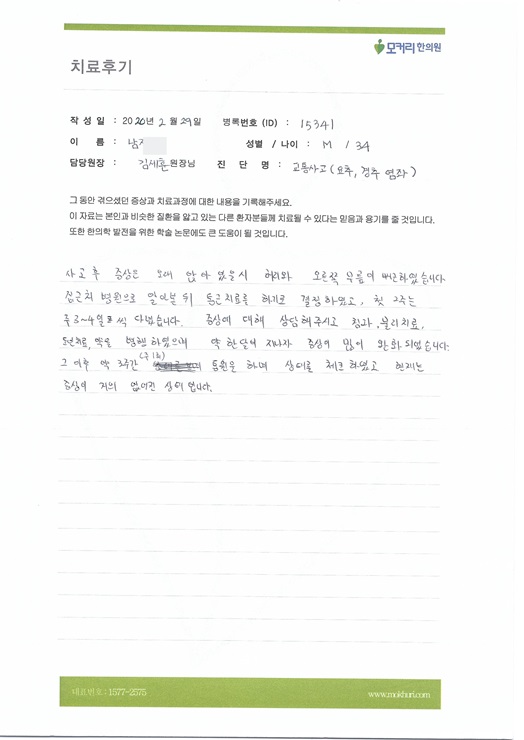 모커리한의원
치료후기
작 성 일 : 2020년 2월 29일 병록번호 (ID) : 15341
이 름 : 남 성별 / 나이 : M / 34
담당원장 : 김세훈원장님 진 단 명 : 교통사고 (요추, 경추 염좌)
그 동안 겪으셨던 증상과 치료과정에 대한 내용을 기록해주세요.
이 자료는 본인과 비슷한 질환을 앓고 있는 다른 환자분들께 치료될 수 있다는 믿음과 용기를 줄 것입니다.
또한 한의학 발전을 위한 학술 논문에도 큰 도움이 될 것입니다.
사고 후 증상은 오래 앉아 있을 시 허리와 오른쪽 무릎이 뻐근하였습니다.
집근처 병원으로 알아본 뒤 통근치료를 하기로 결정하였고, 첫 2주는
주 3~4일로 씩 다녔습니다. 증상에 대해 상담해주시고 침과, 물리치료,
약을 병행하였으며 약 한달이 지나자 증상이 많이 완화되었습니다.
그 이후 약 3주간 (주 1회) 통원을 하며 상태를 체크하였고 현재는
증상이 거의 없어진 상태입니다.
대표번호 : 1577-2575 www.mokhuri.com